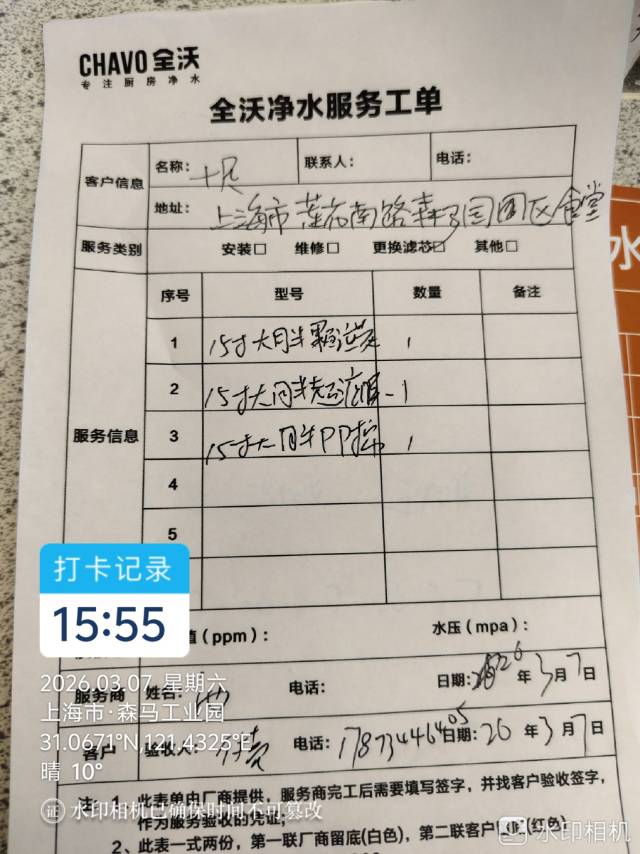 CHAVO 全沃
专注厨房净水
全沃净水服务工单
客户信息
名称：
联系人：
电话：
地址：上海市莲花南路森马园区食堂
服务类别 安装□ 维修□ 更换滤芯□ 其他□
服务信息
序号 型号 数量 备注
1 15寸大胖 1
2 15寸大 1
3 15寸大胖PP棉 1
4
5
值（ppm）： 水压（mpa）：
服务商 姓名： 电话： 日期：2026年3月7日
客户 验收人： 电话： 日期：26年3月7日
注：1、此表单由厂商提供，服务商完工后需要填写签字，并找客户验收签字，
作为服务验收的凭证；
2、此表一式两份，第一联厂商留底(白色)，第二联客户(红色)
水
打卡记录
15:55
2026.03.07 星期六
上海市·森马工业园
31.0671°N,121.4325°E
晴 10°
证 水印相机已确保时间不可篡改
水印相机